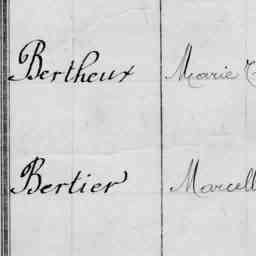 Bertheux Marie
Bertier Marcell